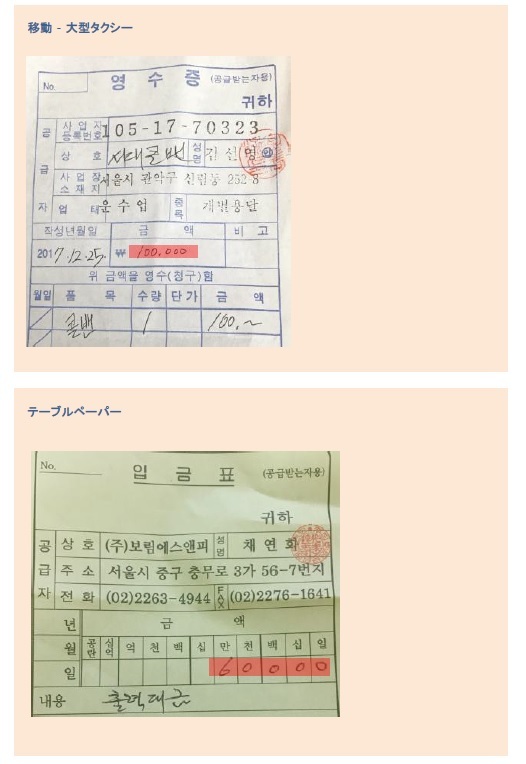 移動 - 大型タクシー
No.
영 수 증 (공급받는자용)
귀하
공 급 자
사업자 등록번호 105-17-70323
상 호 콜밴 성명 김선영 ㊞
사업장 소재지 서울시 관악구 신림동
업 태 운수업 종목 개별용달
작성년월일 금 액 비 고
2017.12.25. ₩ 100,000
위 금액을 영수(청구)함
월일 품 목 수량 단가 금 액
콜밴 1 100,~
テーブルペーパー
No.
입 금 표 (공급받는자용)
귀하
공 급 자
상 호 (주)보림에스앤피 성명 채 연 화
주 소 서울시 중구 충무로 3가 56-7번지
전 화 (02)2263-4944 FAX (02)2276-1641
년 금 액
월 공란 십억 억 천 백 십 만 천 백 십 일
일 6 0 0 0 0
내용 출력대금